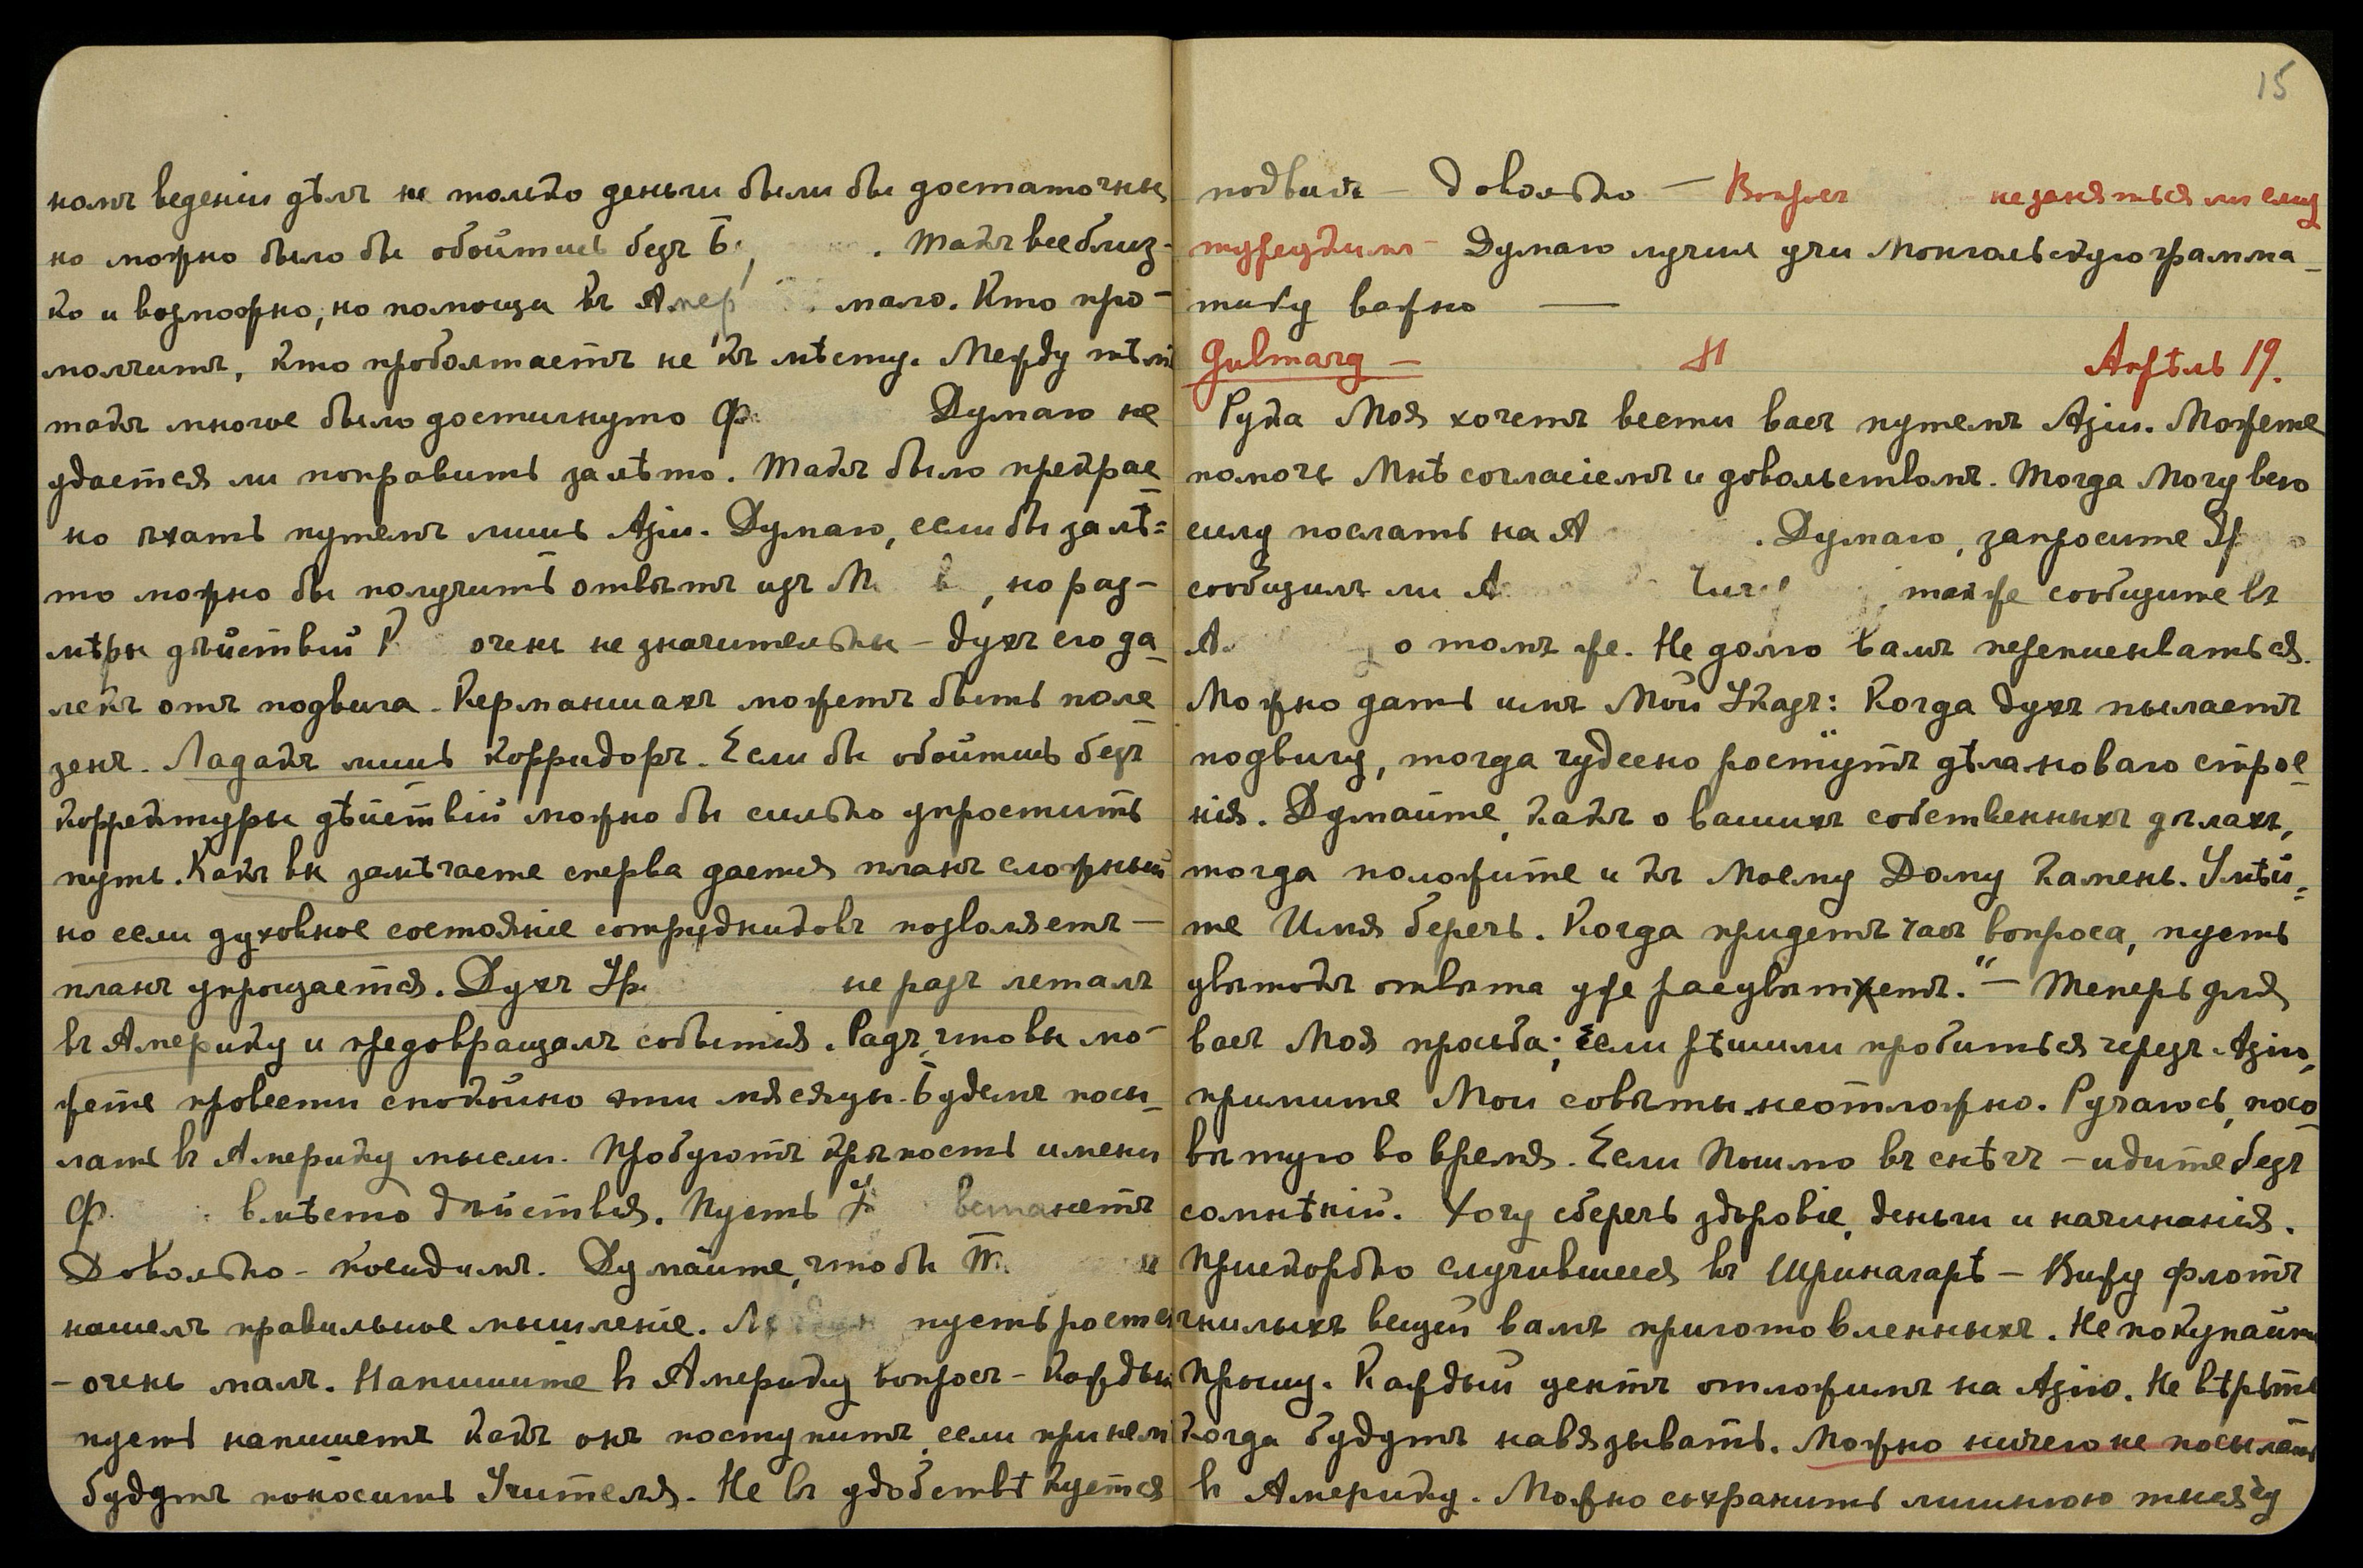 номъ веденіи дѣлъ не только деньги были бы достаточны
но можно было бы обойтись безъ Б. Такъ все близ-
ко и возможно, но помощи въ Амер мало. Кто про-
молчитъ, кто проболтаетъ не къ мѣсту. Между тѣмъ
такъ многое было достигнуто Ф. Думаю не
удается ли поправить за лѣто. Такъ было прекрас
но ѣхать путемъ лишь Азіи. Думаю, если бы за лѣ=
то можно бы получить отвѣтъ изъ М в, но раз-
мѣры дѣйствій Р очень не значительны - духъ его да
лекъ отъ подвига. Керманшахъ можетъ быть поле
зенъ. Ладакъ лишь корридоръ. Если бы обойтись безъ
корректуры дѣйствій можно бы сильно упростить
путь. Какъ вы замѣчаете сперва дается планъ сложный
но если духовное состояніе сотрудниковъ позволяетъ —
планъ упрощается. Духъ Ур. не разъ леталъ
въ Америку и предовращалъ событія. Радъ, что вы мо-
жете провести спокойно эти мясяцы. Будемъ посы-
лать въ Америку мысли. Пробуютъ крѣпость имени
Ф. вмѣсто дѣйствія. Пусть встанетъ
Довольно - посидимъ. Думайте, чтобы Т. и
нашелъ правильное мышленіе. пусть ростетъ
- очень малъ. Напишите въ Америку вопросъ - каждый
пусть напишетъ какъ онъ поступитъ если при немъ
будутъ поносить Учителя. Не въ удобствѣ куется
15
подвигъ - довольно — Вопрос не заняться ли ему
турецкимъ - Думаю лучше учи Монгольскую грамма-
тику важно —
Gulmarg — Апрѣль 19.
Рука Моя хочетъ вести васъ путемъ Азіи. Можете
помочь Мнѣ согласіемъ и довольствомъ. Тогда Могу всю
силу послать на А . Думаю, запросите Ур
сообщилъ ли А также сообщите въ
А. о томъ же. Не долго вамъ переписыватьсѧ.
Можно дать имъ Мой Указъ: Когда духъ пылаетъ
подвигу, тогда чудесно "ростутъ дѣла новаго строе
нія. Думайте, какъ о вашихъ собственныхъ дѣлахъ,
тогда положите и къ Моему Дому камень. Умѣй-
те Имя беречь. Когда придетъ часъ вопроса, пусть
цвѣтокъ отвѣта уже расцвѣтетъ." — Теперь для
васъ Моя просьба; если рѣшили пробиться черезъ Азію,
примите Мои совѣты неотложно. Ручаюсь, посо
вѣтую во время. Если Пошлю въ снѣгъ - идите безъ
сомнѣній. Хочу сберечь здоровіе, деньги и начинанія.
Прискорбно случившееся въ Шринагарѣ - Вижу флотъ
гнилыхъ вещей вамъ приготовленныхъ. Не покупайте
Прошу. Каждый центъ отложимъ на Азію. Не вѣрьте
когда будутъ навязывать. Можно ничего не посылать
въ Америку. Можно сохранить лишнюю тысячу